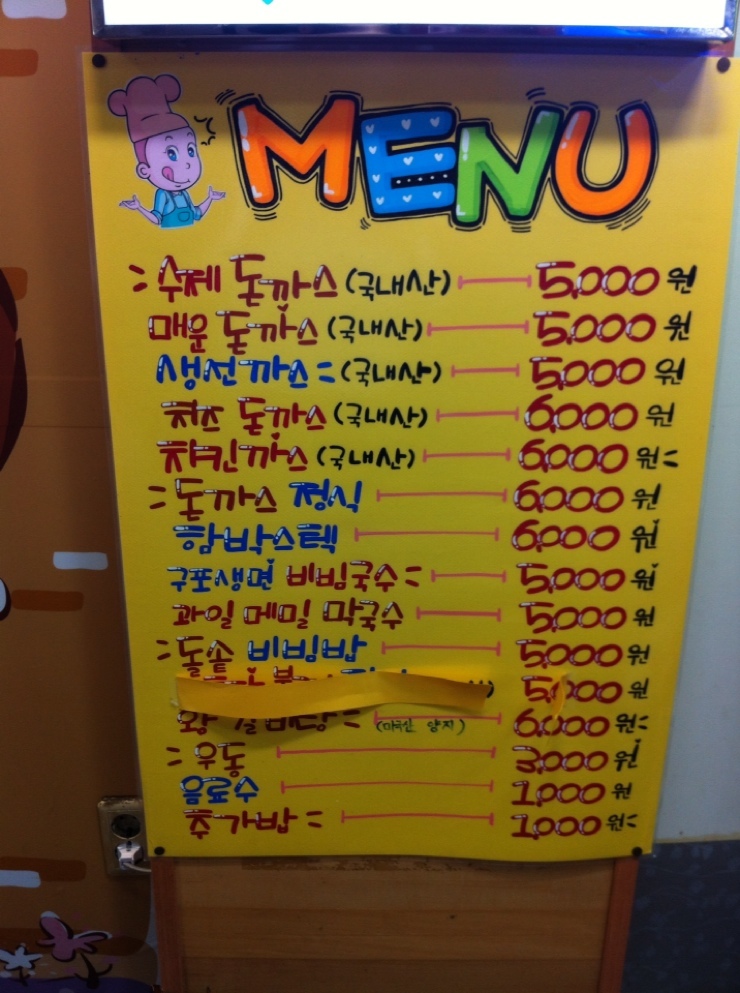 MENU
수제 돈까스 (국내산) 5,000 원
매운 돈까스 (국내산) 5,000 원
생선까스 (국내산) 5,000 원
치즈 돈까스 (국내산) 6,000 원
치킨까스 (국내산) 6,000 원
돈까스 정식 6,000 원
함박스텍 6,000 원
구포생면 비빔국수 5,000 원
과일 메밀 막국수 5,000 원
돌솥 비빔밥 5,000 원
5,000 원
왕 갈비탕 (미국산 양지) 6,000 원
우동 3,000 원
음료수 1,000 원
추가밥 1,000 원